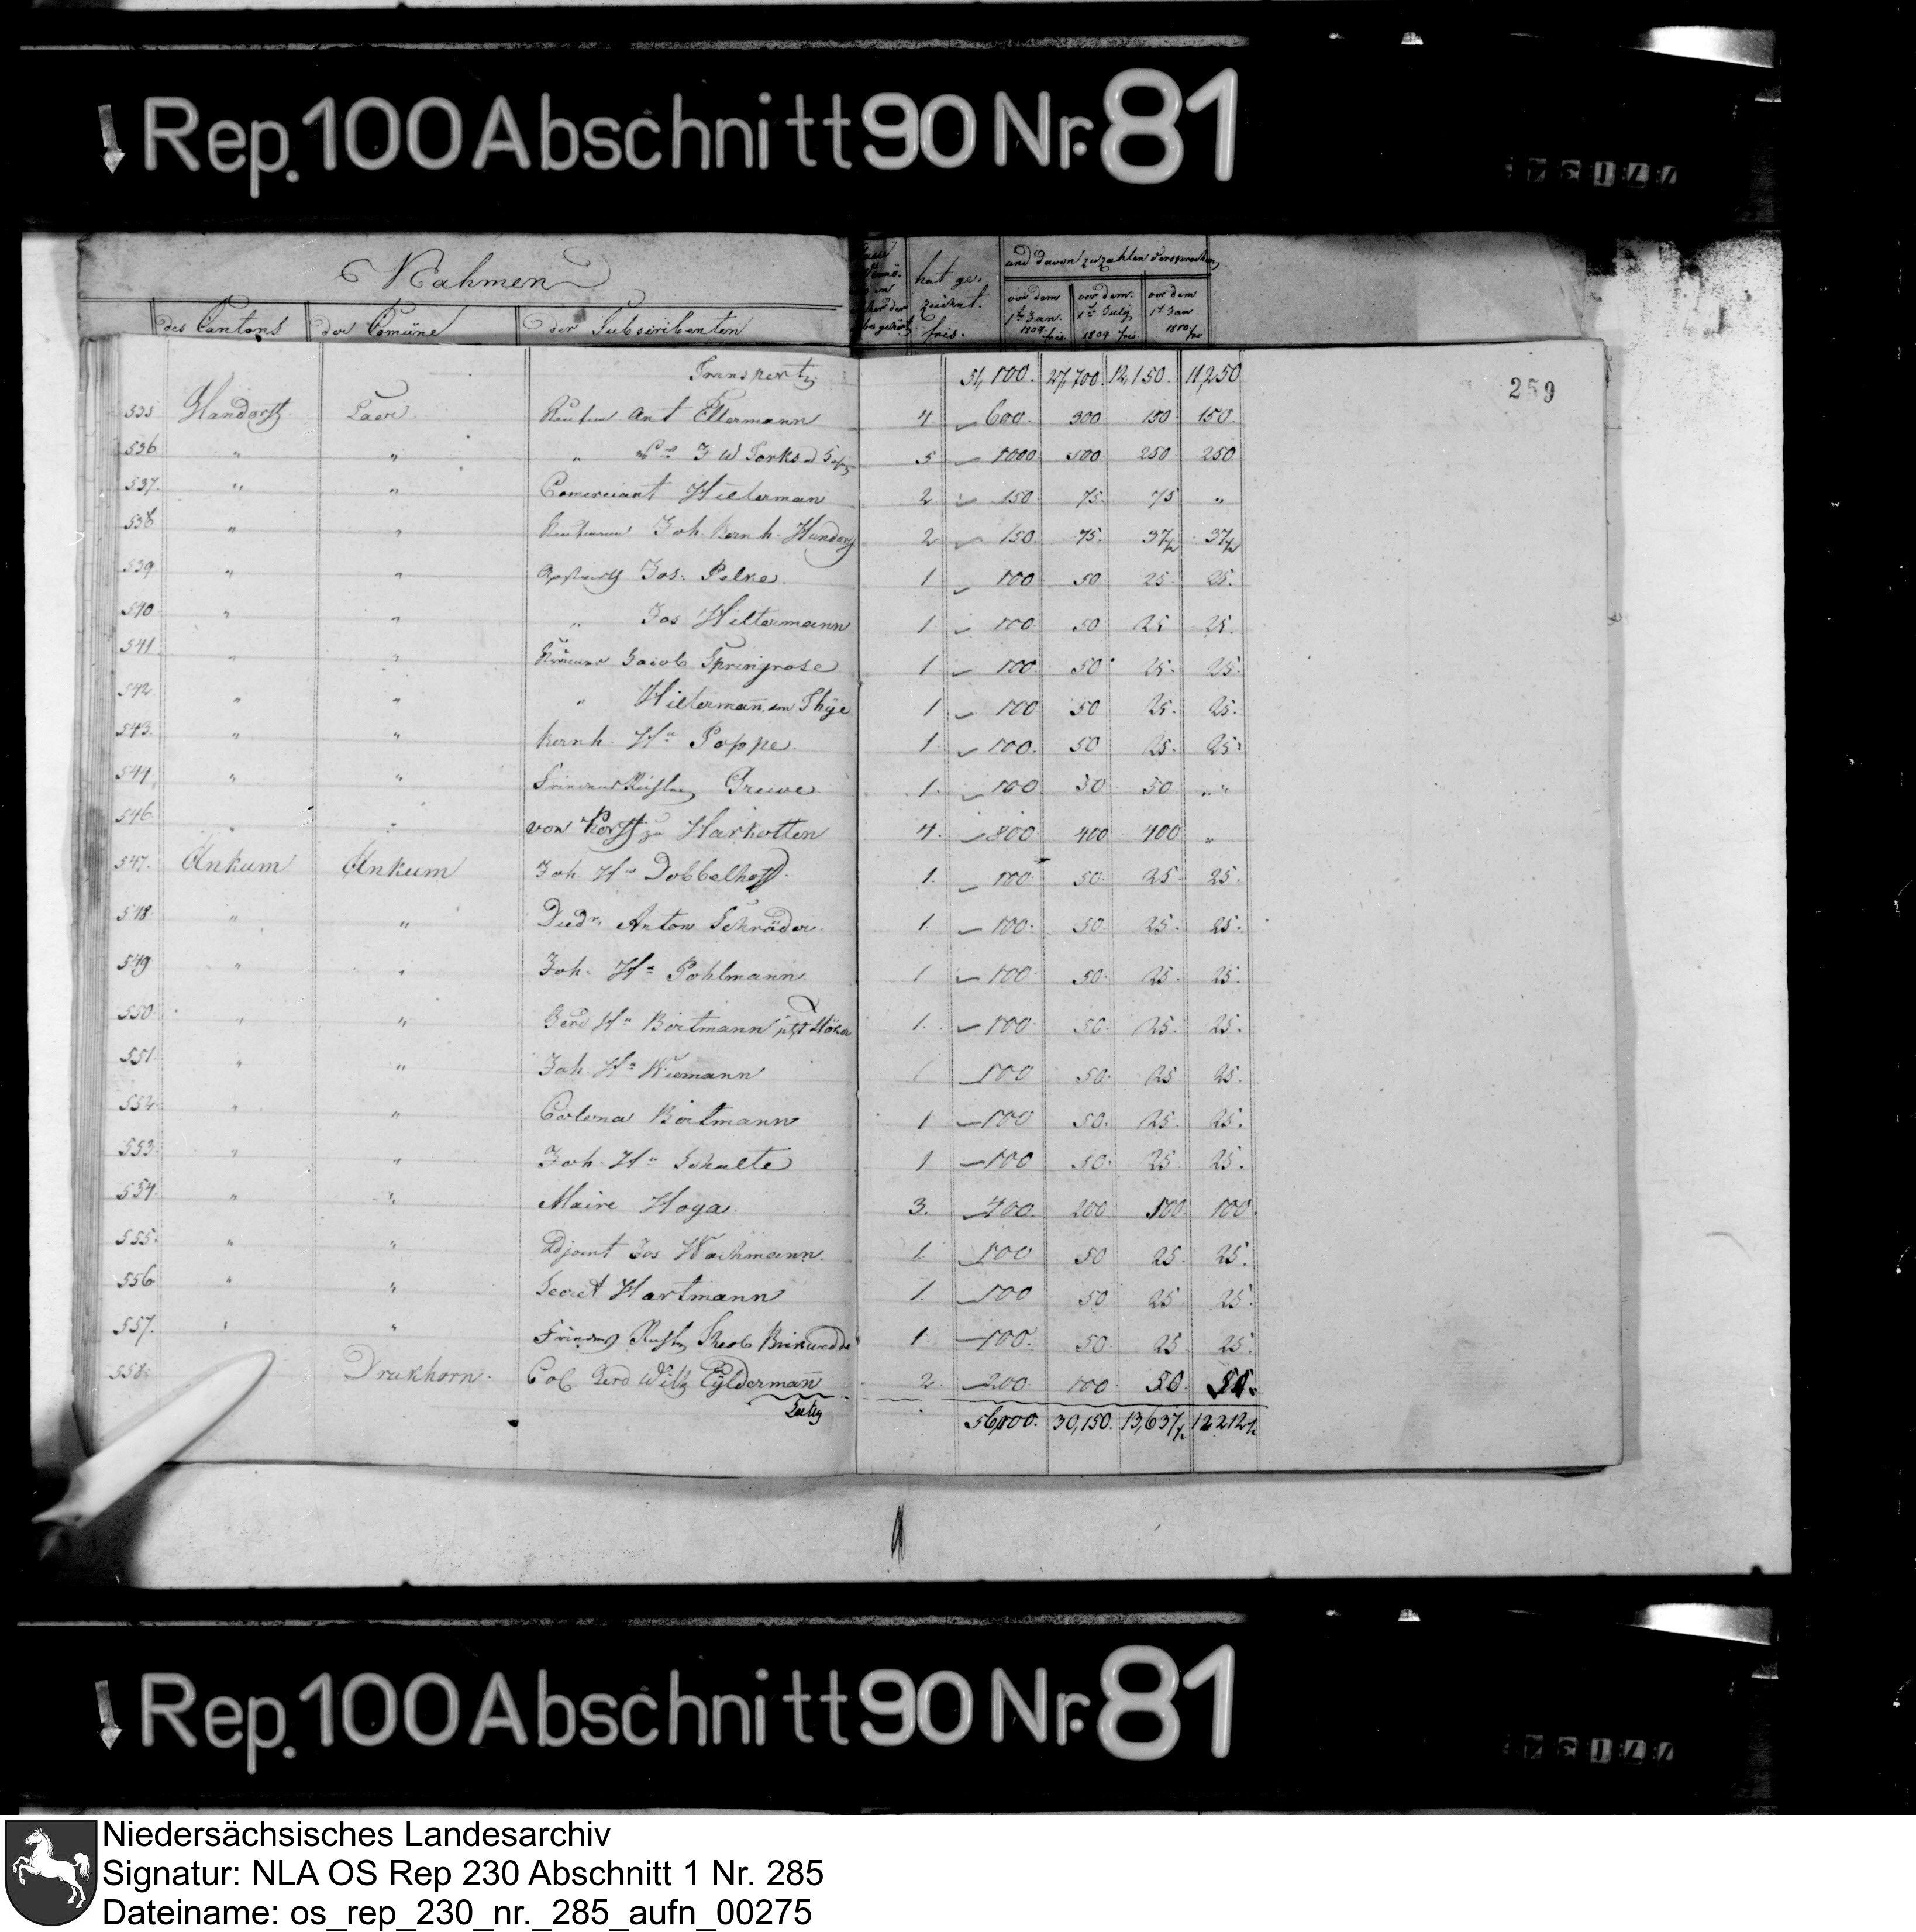 Rep. 100 Abschnitt 90 Nr. 81
Nahmen
des Cantons der Comüne der Subscribenten
hat gezeichnet. frcs.
und davon zuzahlen versprochen
vor dem 1ten Jan. 1809. frcs vor dem 1ten July 1809 frcs vor dem 1t Jan 1810 frc
259
Transport 51,100. 27,700. 12,150. 11,250
535 Handorff Laer Ant Ellermann 4 600. 300 150 150.
536 " " " J W 5 1000 500 250 250.
537. " " Comerciant Hiltermann 2 150 75. 75 "
538 " " Joh Bernh. 2 150 75. 37½ 37½
539 " " Jos. Pelke 1 100 50 25 25.
540 " " " Jos Hiltermann 1 100 50 25 25.
541 " " Jacob Springrose 1 100 50 25. 25.
542 " " " Hiltermañ am Thye 1 100 50 25. 25.
543. " " Bernh. Hn Poppe. 1 100. 50 25. 25.
544 " " Grewe 1. 100 50 50 " "
546 " " von Korff zu Harkotten 4. 800 400 400 "
547. Ankum Ankum Joh Hn Dobbelhoff. 1. 100 50. 25. 25.
548 " " Diedr. Anton Schröder. 1. 100. 50. 25. 25.
549 " " Joh. Hn Pohlmann 1 100 50. 25. 25.
550 " " Gerd Hn Boitmann jetzt 1. 100 50. 25. 25.
551. " " Joh Hn Wiemann 1 100 50. 25 25.
552 " " Colona Boitmann 1 100 50. 25. 25.
553. " " Joh. Hn Schulte 1 100 50. 25. 25.
554 " " Maire Hoya 3. 400. 200 100. 100.
555. " " Adjoint Jos Wachmann. 1. 100 50 25. 25.
556 " " Secret Hartmann 1. 100 50 25. 25.
557. " " 1. 100. 50. 25 25.
558. Druchhorn. Col. Gerd Wilh Eylderman 2 200. 100. 50. 50.
56,100. 30,150. 13,637½ 12212½
Rep. 100 Abschnitt 90 Nr. 81
Niedersächsisches Landesarchiv
Signatur: NLA OS Rep 230 Abschnitt 1 Nr. 285
Dateiname: os_rep_230_nr._285_aufn_00275